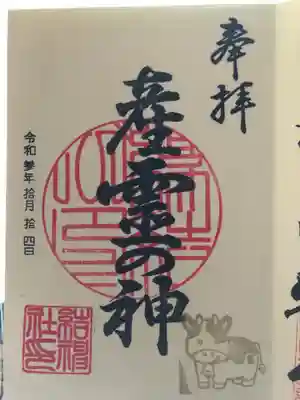 奉拝
産霊の神
令和参年拾月拾四日
結神
社印